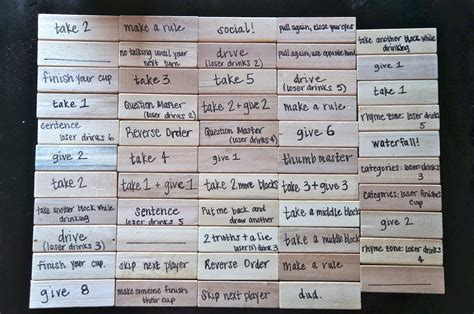 take 2
finish your cup
take 1
sentence
loser drinks 6
give 2
take 2
take another block while
drinking
drive
(loser drinks 3)
finish your cup.
give 8
make a rule
no talking until your
next turn
take 3
Question Master
(loser drinks 2)
Reverse Order
take 4
take 1 + give 1
sentence
loser drinks 5
skip next player
make someone finish
their cup
social!
drive
(loser drinks 2)
take 5
take 2 + give 2
Question Master
(loser drinks 4)
give 1
take 2 more blocks
Put me back and
draw another
2 truths + a lie
loser drinks 3
Reverse Order
Skip next player
pull again, close your eyes
pull again, use opposite hand
drive
(loser drinks 5)
make a rule
give 6
thumb master
take 3 + give 3
take a middle block
take a middle block
make a rule
dud.
take another block while
drinking
give 1
take 1
rhyme zone: loser drinks
5
waterfall!
categories: loser drinks
3
Categories: loser finishes
cup
give 2
rhyme zone: loser drinks
4